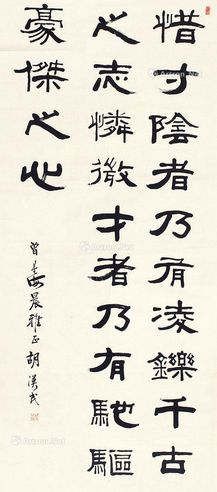 惜寸陰者乃有凌鑠千古
之志憐微才者乃有馳驅
豪傑之心
晨雅正 胡漢民